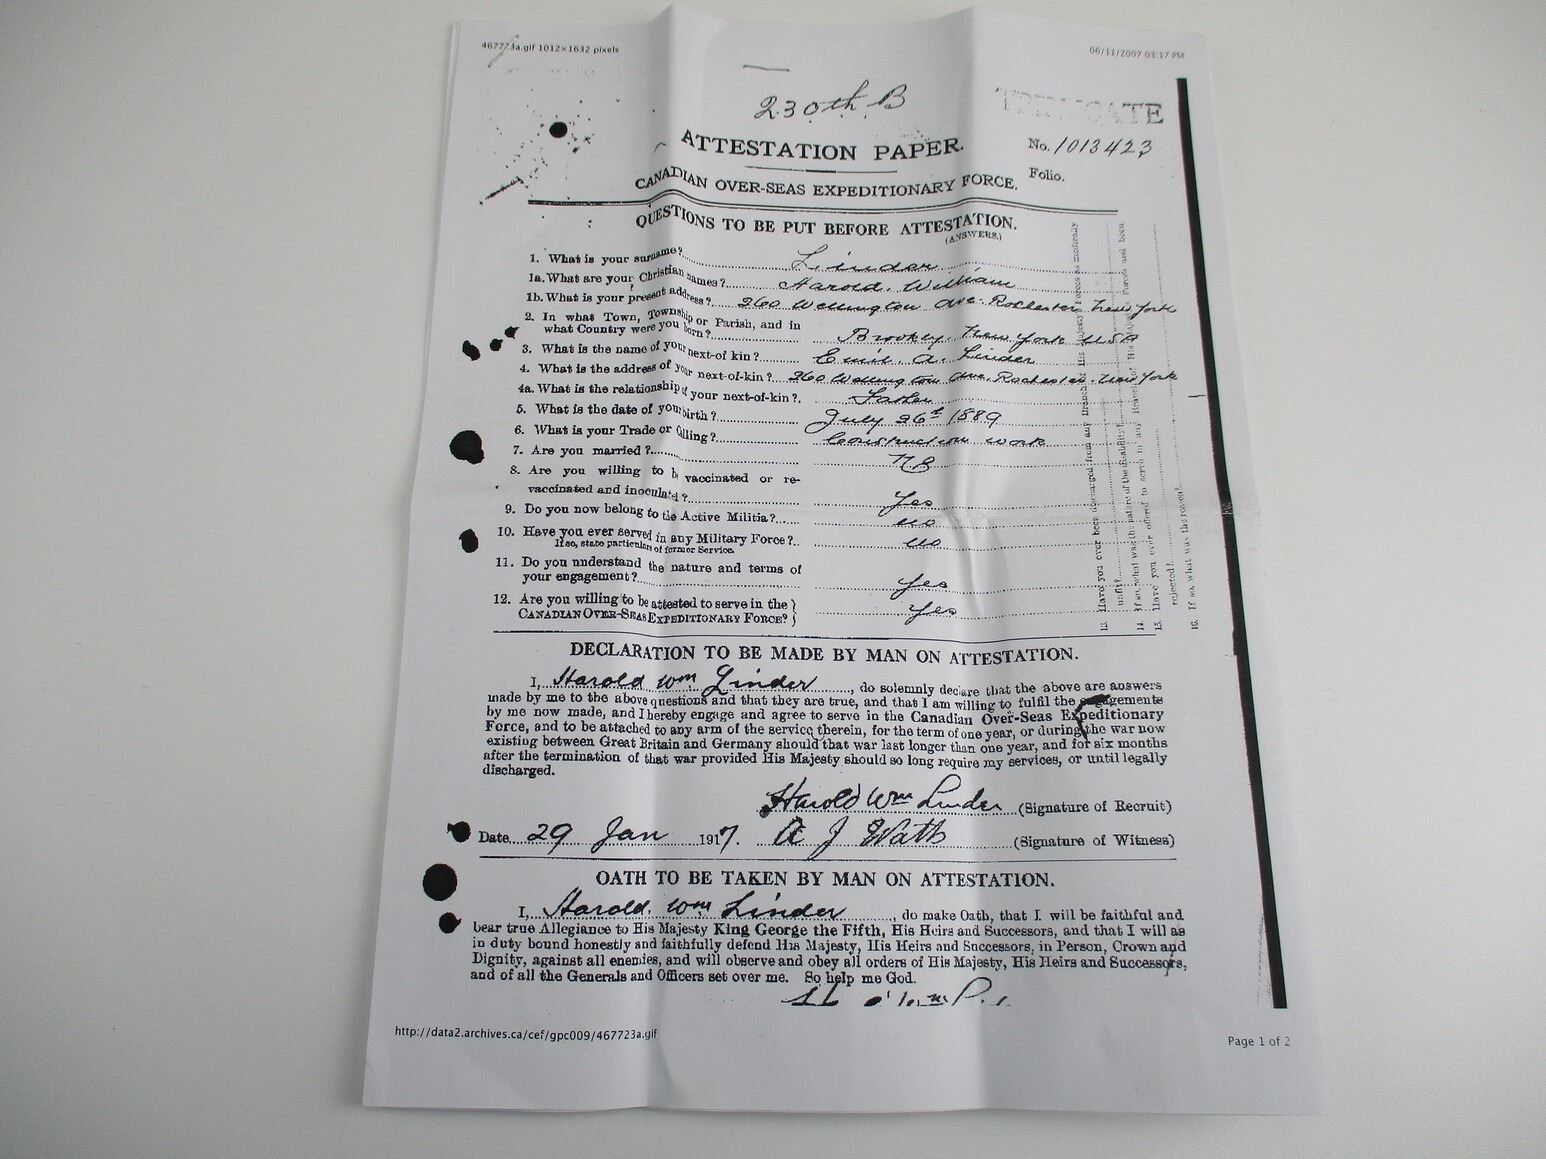 467723a.gif 1012×1632 pixels
06/11/2007 03:17 PM
230th B
TRIPLICATE
ATTESTATION PAPER.
No. 1013423
Folio.
CANADIAN OVER-SEAS EXPEDITIONARY FORCE.
QUESTIONS TO BE PUT BEFORE ATTESTATION.
(ANSWERS.)
1. What is your surname? Linder
1a. What are your Christian names? Harold. William
1b. What is your present address? 260 Wellington Ave. Rochester New York
2. In what Town, Township or Parish, and in
what Country were you born? New York USA
3. What is the name of your next-of kin? Emil. A. Linder
4. What is the address of your next-of-kin? 260 Wellington Ave. Rochester. New York
4a. What is the relationship of your next-of-kin? Father
5. What is the date of your birth? July 26th 1889
6. What is your Trade or Calling? Construction work
7. Are you married? No
8. Are you willing to be vaccinated or re-
vaccinated and inoculated? Yes
9. Do you now belong to the Active Militia? no
10. Have you ever served in any Military Force? no
If so, state particulars of former Service.
11. Do you understand the nature and terms of
your engagement? Yes
12. Are you willing to be attested to serve in the
CANADIAN OVER-SEAS EXPEDITIONARY FORCE? Yes
13. Have you ever been discharged from any Branch of His Majesty's Forces as medically
unfit?
14. If so, what was the nature of the disability?
15. Have you ever offered to serve in any Branch of His Forces and been
rejected?
16. If so, what was the reason?
DECLARATION TO BE MADE BY MAN ON ATTESTATION.
I, Harold Wm Linder, do solemnly declare that the above are answers
made by me to the above questions and that they are true, and that I am willing to fulfil the engagements
by me now made, and I hereby engage and agree to serve in the Canadian Over-Seas Expeditionary
Force, and to be attached to any arm of the service therein, for the term of one year, or during the war now
existing between Great Britain and Germany should that war last longer than one year, and for six months
after the termination of that war provided His Majesty should so long require my services, or until legally
discharged.
Harold Wm Linder (Signature of Recruit)
Date 29 Jan 1917. A J Watts (Signature of Witness)
OATH TO BE TAKEN BY MAN ON ATTESTATION.
I, Harold. Wm Linder, do make Oath, that I will be faithful and
bear true Allegiance to His Majesty King George the Fifth, His Heirs and Successors, and that I will as
in duty bound honestly and faithfully defend His Majesty, His Heirs and Successors, in Person, Crown and
Dignity, against all enemies, and will observe and obey all orders of His Majesty, His Heirs and Successors,
and of all the Generals and Officers set over me. So help me God.
http://data2.archives.ca/cef/gpc009/467723a.gif
Page 1 of 2